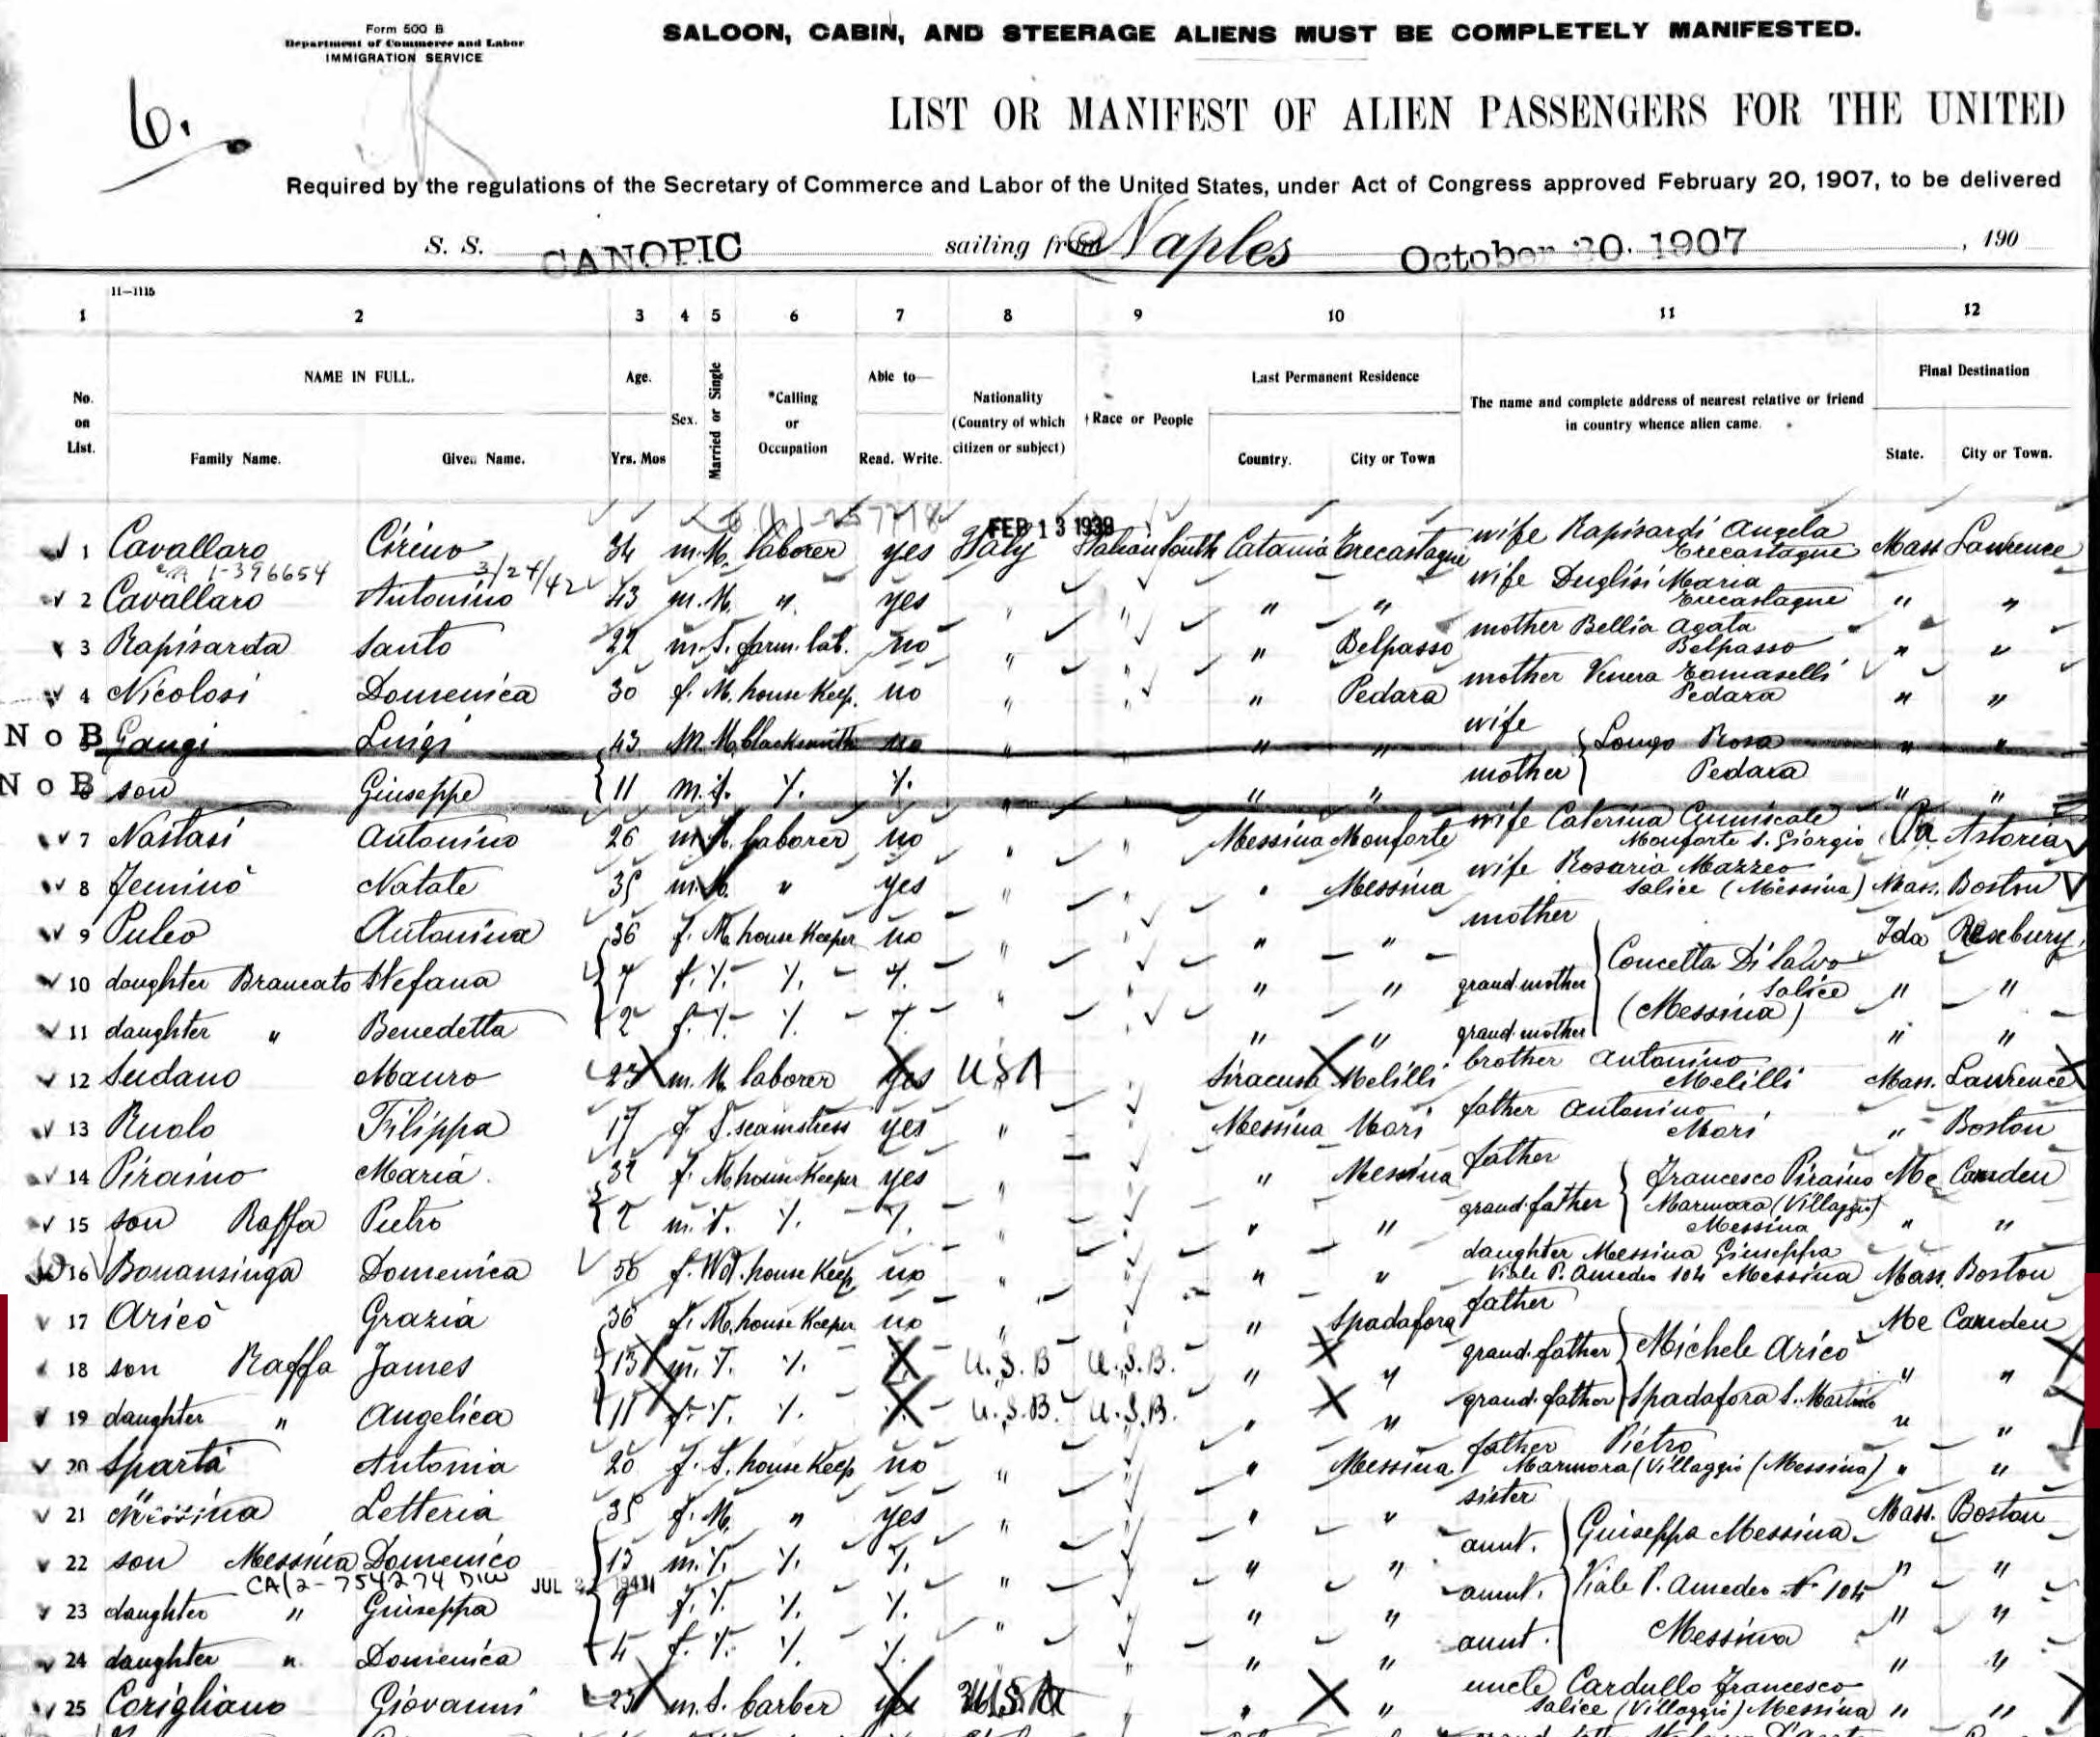 Form 500 B
Department of Commerce and Labor
IMMIGRATION SERVICE
SALOON, CABIN, AND STEERAGE ALIENS MUST BE COMPLETELY MANIFESTED.
6.
LIST OR MANIFEST OF ALIEN PASSENGERS FOR THE UNITED
Required by the regulations of the Secretary of Commerce and Labor of the United States, under Act of Congress approved February 20, 1907, to be delivered
S. S. CANOPIC sailing from Naples October 20. 1907, 190
11—1115
1 2 3 4 5 6 7 8 9 10 11 12
No. on List.
NAME IN FULL.
Family Name. Given Name.
Age.
Yrs. Mos
Sex.
Married or Single
*Calling or Occupation
Able to—
Read. Write.
Nationality
(Country of which citizen or subject)
†Race or People
Last Permanent Residence
Country. City or Town
The name and complete address of nearest relative or friend in country whence alien came.
Final Destination
State. City or Town.
FEB 13 1939
1 Cavallaro Cirino 34 m. M. laborer yes Italy Italian South Catania Trecastagne wife Rapisardi Angela Trecastagne Mass Lawrence
1-396654 3/24/42
2 Cavallaro Antonino 43 m. M. " yes " " " " wife Maria Trecastagne " "
3 Rapisarda Santo 22 m. S. farm. lab. no " " " Belpasso mother Bellia Agata Belpasso " "
4 Nicolosi Domenica 30 f. M. house Keep. no " " " Pedara mother Venera Tomaselli Pedara " "
N o B 5 Gangi Luigi 43 M. M. blacksmith no " " " " wife { Longo Rosa " "
N o B 6 son Giuseppe 11 m. S. %. %. " " " mother { Pedara " "
7 Nastasi Antonino 26 m. M. laborer no " " Messina Monforte wife Caterina Monforte S. Giorgio Pa. Astoria
8 Jeminò Natale 35 m. M. " yes " " Messina wife Rosaria Mazzeo Salice (Messina) Mass. Boston
9 Puleo Antonina 36 f. M. house Keeper no " " " " mother { Concetta Di Salvo Ida Roxbury
10 daughter Brancato Stefana 7 f. %. %. %. " " " " grand mother { Salice " "
11 daughter " Benedetta 2 f. %. %. %. " " " grand mother { (Messina) " "
12 Sudano Mauro 23 m. M. laborer yes USA Siracusa Melilli brother Antonino Melilli Mass. Lawrence
13 Ruolo Filippa 17 f. S. seamstress yes " Messina Mari father Antonino Mari " Boston
14 Piraino Maria 32 f. M house Keeper yes " " Messina father { Francesco Piraino Me Camden
15 son Raffa Pietro 2 m. S. %. %. " " " grand father { Marmora (Villaggio) Messina " "
16 Bonansinga Domenica 50 f. Wd. house Keep no " " " " daughter Messina Giuseppa Viale P. Amedeo 104 Messina Mass. Boston
17 Aricò Grazia 36 f. M. house Keeper no " " " Spadafora father { Me Camden
18 son Raffa James 13 m. S. %. U. S. B U. S. B. " " grand father { Michele Aricò " "
19 daughter " Angelica 11 f. S. %. U. S. B. U. S. B. " " grand father { Spadafora S. Martino " "
20 Spartà Antonia 20 f. S. house Keep no " " Messina father Pietro Marmora (Villaggio (Messina) " "
21 Messina Letteria 35 f. M. " yes " " " sister { Mass. Boston
22 son Messina Domenico 13 m. S. %. %. " " " aunt. { Giuseppa Messina " "
CA(2-754274 DIW JUL 1941
23 daughter " Giuseppa 9 f. S. %. %. " " " aunt. { Viale P. Amedeo N. 104 " "
24 daughter " Domenica 4 f. S. %. %. " " " aunt. { Messina " "
25 Corigliano Giovanni 23 m. S. barber yes USA " " uncle Cardullo Francesco Salice (Villaggio) Messina " "